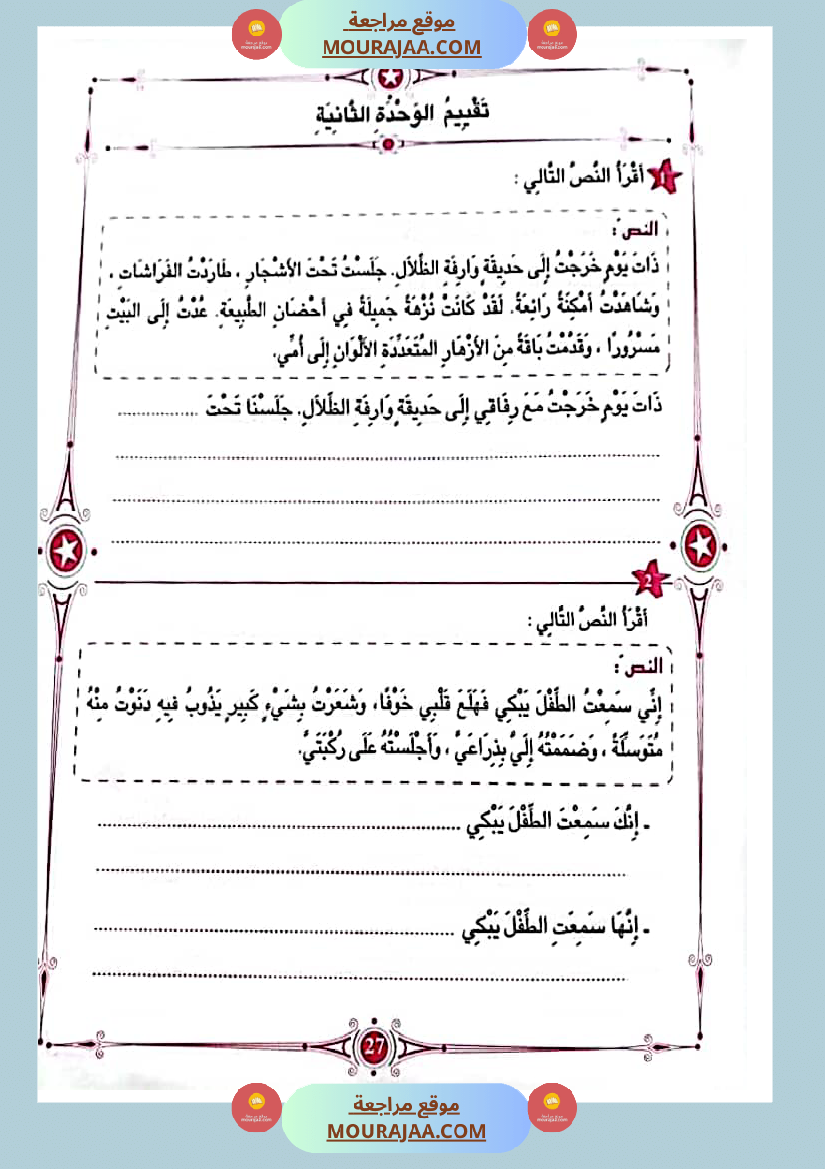 موقع مراجعة
MOURAJAA.COM
موقع مراجعة
mourajaa.com
موقع مراجعة
mourajaa.com
تَقْيِيمُ الوَحْدَةِ الثَّانِيَةِ
1 أَقْرَأُ النَّصَّ التَّالِي :
النصّ :
ذَاتَ يَوْمٍ خَرَجْتُ إِلَى حَدِيقَةٍ وَارِفَةِ الظِّلاَلِ. جَلَسْتُ تَحْتَ الأَشْجَارِ ، طَارَدْتُ الفَرَاشَاتِ ،
وَشَاهَدْتُ أَمْكِنَةً رَائِعَةً. لَقَدْ كَانَتْ نُزْهَةً جَمِيلَةً فِي أَحْضَانِ الطَّبِيعَةِ. عُدْتُ إِلَى البَيْتِ
مَسْرُورًا ، وَقَدَّمْتُ بَاقَةً مِنَ الأَزْهَارِ المُتَعَدِّدَةِ الأَلْوَانِ إِلَى أُمِّي.
ذَاتَ يَوْمٍ خَرَجْتُ مَعَ رِفَاقِي إِلَى حَدِيقَةٍ وَارِفَةِ الظِّلاَلِ. جَلَسْنَا تَحْتَ ................
2
أَقْرَأُ النَّصَّ التَّالِي :
النصّ :
إِنِّي سَمِعْتُ الطِّفْلَ يَبْكِي فَهَلَعَ قَلْبِي خَوْفًا، وَشَعَرْتُ بِشَيْءٍ كَبِيرٍ يَذُوبُ فِيهِ دَنَوْتُ مِنْهُ
مُتَوَسِّلَةً ، وَضَمَمْتُهُ إِلَيَّ بِذِرَاعَيَّ ، وَأَجْلَسْتُهُ عَلَى رُكْبَتَيَّ.
- إِنَّكَ سَمِعْتَ الطِّفْلَ يَبْكِي ................
- إِنَّهَا سَمِعَتِ الطِّفْلَ يَبْكِي ................
27
موقع مراجعة
MOURAJAA.COM
موقع مراجعة
mourajaa.com
موقع مراجعة
mourajaa.com